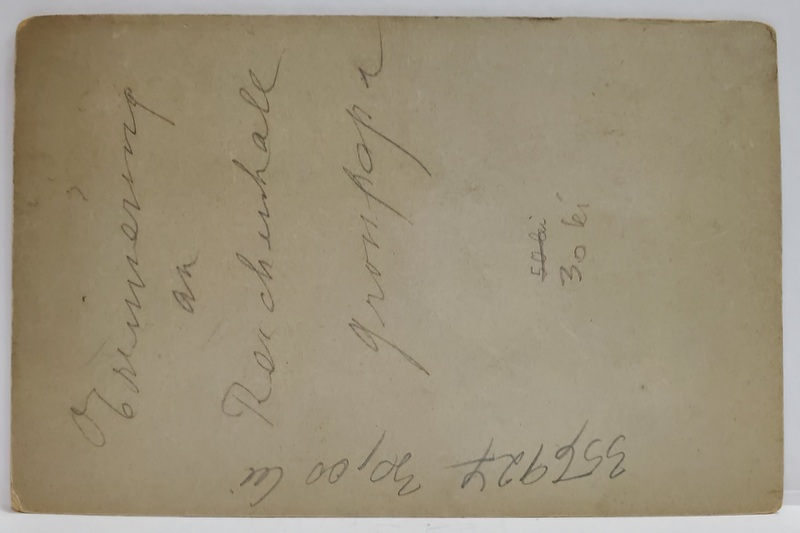 Erinnerung
an
Reichenhall
Gronpapa
50 lei
30 lei
356924 30,00 lei